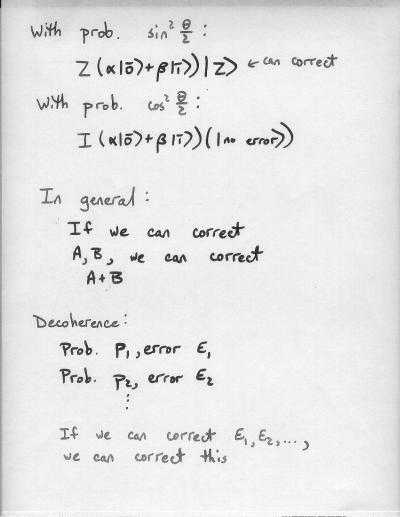 With prob. sin² θ/2 :
Z (α|0̄⟩ + β|1̄⟩)|Z⟩ ← can correct
With prob. cos² θ/2 :
I (α|0̄⟩ + β|1̄⟩)(|no error⟩)
In general :
If we can correct
A, B, we can correct
A + B
Decoherence :
Prob. P₁, error E₁
Prob. P₂, error E₂
⋮
If we can correct E₁, E₂, ...,
we can correct this